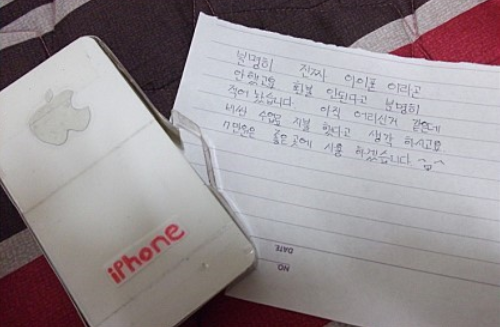 iPhone
분명히 진짜 아이폰 이라고
안했고요 환불 안된다고 분명히
적어 놨습니다. 아직 어리신거 같은데
비싼 수업료 지불 했다고 생각 하시고요
7만원은 좋은곳에 사용 하겠습니다 ^_^
DATE
NO.